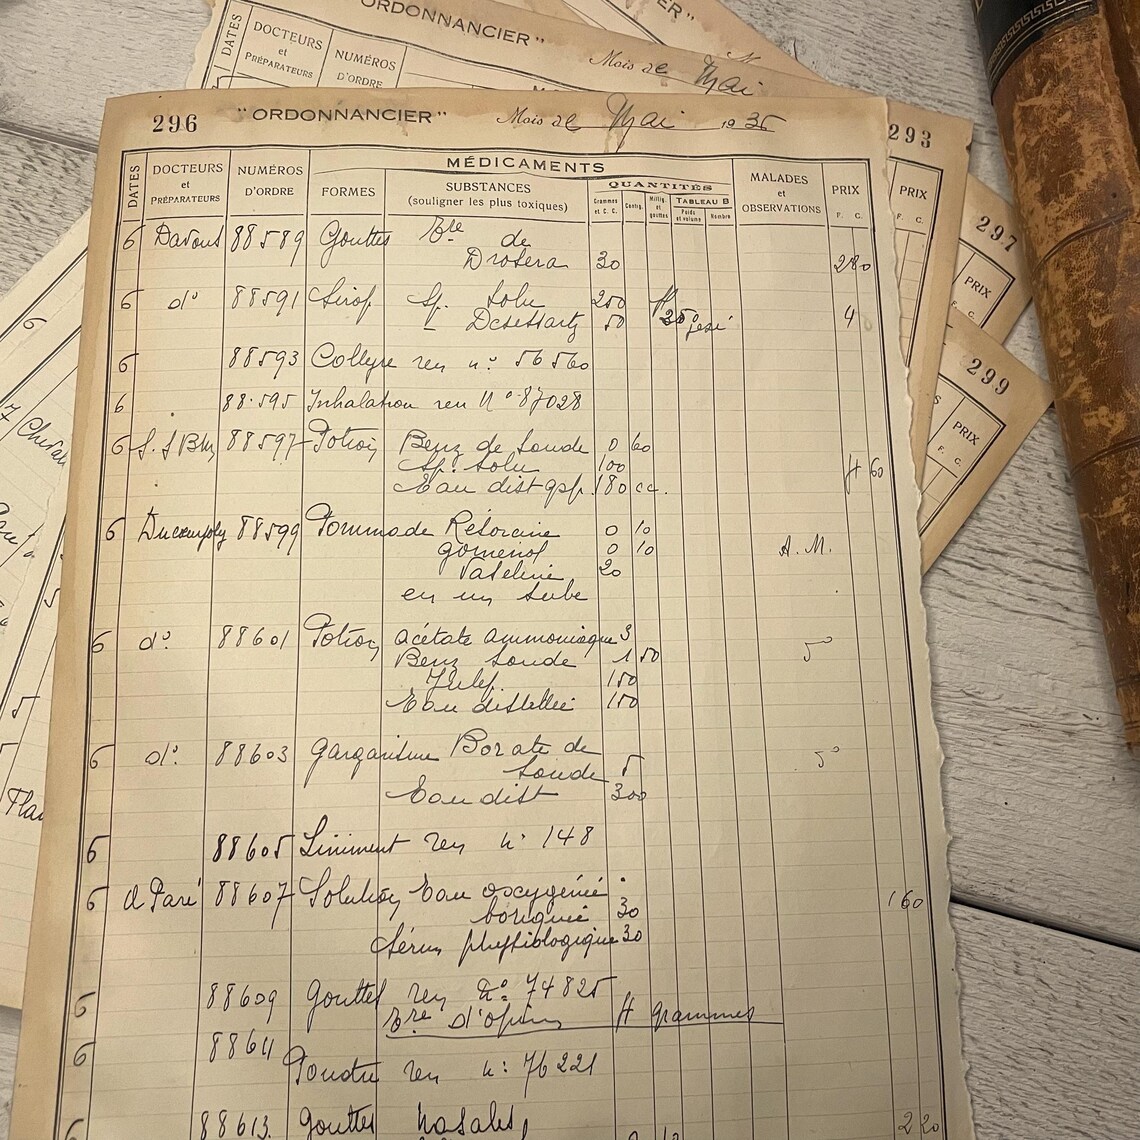 ORDONNANCIER"
Mois de Mai
DATES DOCTEURS et PRÉPARATEURS NUMÉROS D'ORDRE
296 "ORDONNANCIER" Mois de Mai 1935
293
297
299
PRIX
F. C.
PRIX
F. C.
PRIX
F. C.
DATES DOCTEURS et PRÉPARATEURS NUMÉROS D'ORDRE MÉDICAMENTS MALADES et OBSERVATIONS PRIX F. C.
FORMES SUBSTANCES (souligner les plus toxiques) QUANTITÉS
Grammes et C. C. Centig. Millig. et gouttes TABLEAU B Poids et volume Nombre
6 Davout 88589 Gouttes Tre de
Drosera 30 2 80
6 d° 88591 Sirop Sp. tolu 200 4
Desessartz 50
6 88593 Collyre ren n° 56560
6 88595 Inhalation ren N° 87028
6 88597 Potion Benz de Soude 0 60
Sp. tolu 100 4 60
Eau dist qsp. 180 cc.
6 88599 Pommade Résorcine 0 10
gomenol 0 10 A. M.
Vaseline 20
en un tube
6 d° 88601 Potion acétate ammoniaque 3
Benz Soude 1 50
Julep 150
Eau distillée 150
6 d° 88603 gargarisme Borate de
Soude 5
Eau dist 300
6 88605 Liniment ren n° 148
6 A Paré 88607 Solution Eau oxygénée
boriquée 30 1 60
Sérum physiologique 30
6 88609 gouttes ren N° 74825
Tre d'Opium 4 grammes
6 88611
Poudre ren n° 76221
6 88613 gouttes nasales 2 20